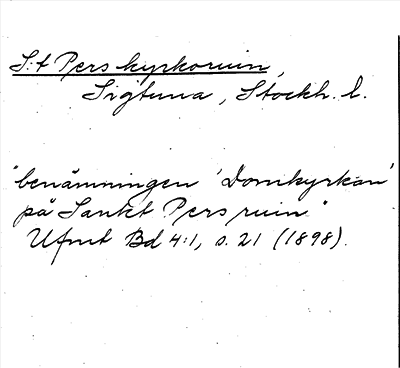 S:t Pers kyrkoruin,
Sigtuna, Stockh. l.
"benämningen 'Domkyrkan'
på Sankt Pers ruin."
Ufmt Bd 4:1, s. 21 (1898).